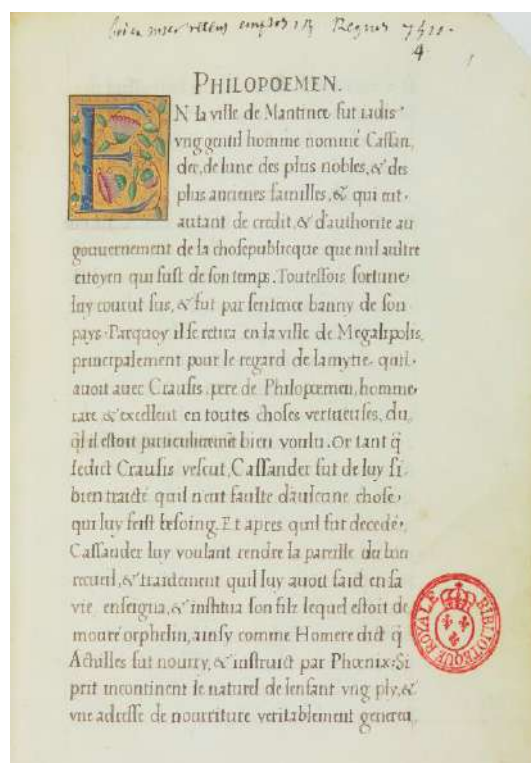 Regius 7410.
4
PHILOPOEMEN.
EN la ville de Mantinee fut iadis
vng gentil homme nommé Cassan,
der, de lune des plus nobles, & des
plus ancienes familles, & qui eut
autant de credit, & d'authorite au
gouuernement de la chosepublicque que nul aultre
citoyen qui fust de son temps. Toutesfois fortune
luy courut sus, & fut par sentence banny de son
pays. Parquoy il se retira en la ville de Megalipolis,
principalement pour le regard de lamytie quil
auoit auec Crausis, pere de Philopœmen, homme
rare & excellent en toutes choses vertueuses, du,
ql il estoit particulieremēt bien voulu. Or tant q̄
ledict Crausis vescut, Cassander fut de luy si
bien traicté quil n'eut faulte d'aulcune chose
qui luy feist besoing. Et apres quil fut decedé,
Cassander luy voulant rendre la pareille du bon
recueil, & traictement quil luy auoit faict en sa
vie enseigna, & institua son filz lequel estoit de
mouré orphelin, ainsy comme Homere dict q̄
Achilles fut nourry, & instruict par Phœnix. Si
prit incontinent le naturel de lenfant vng ply, &
vne adresse de nourriture veritablement genereu,
BIBLIOTEQUE ROYALE